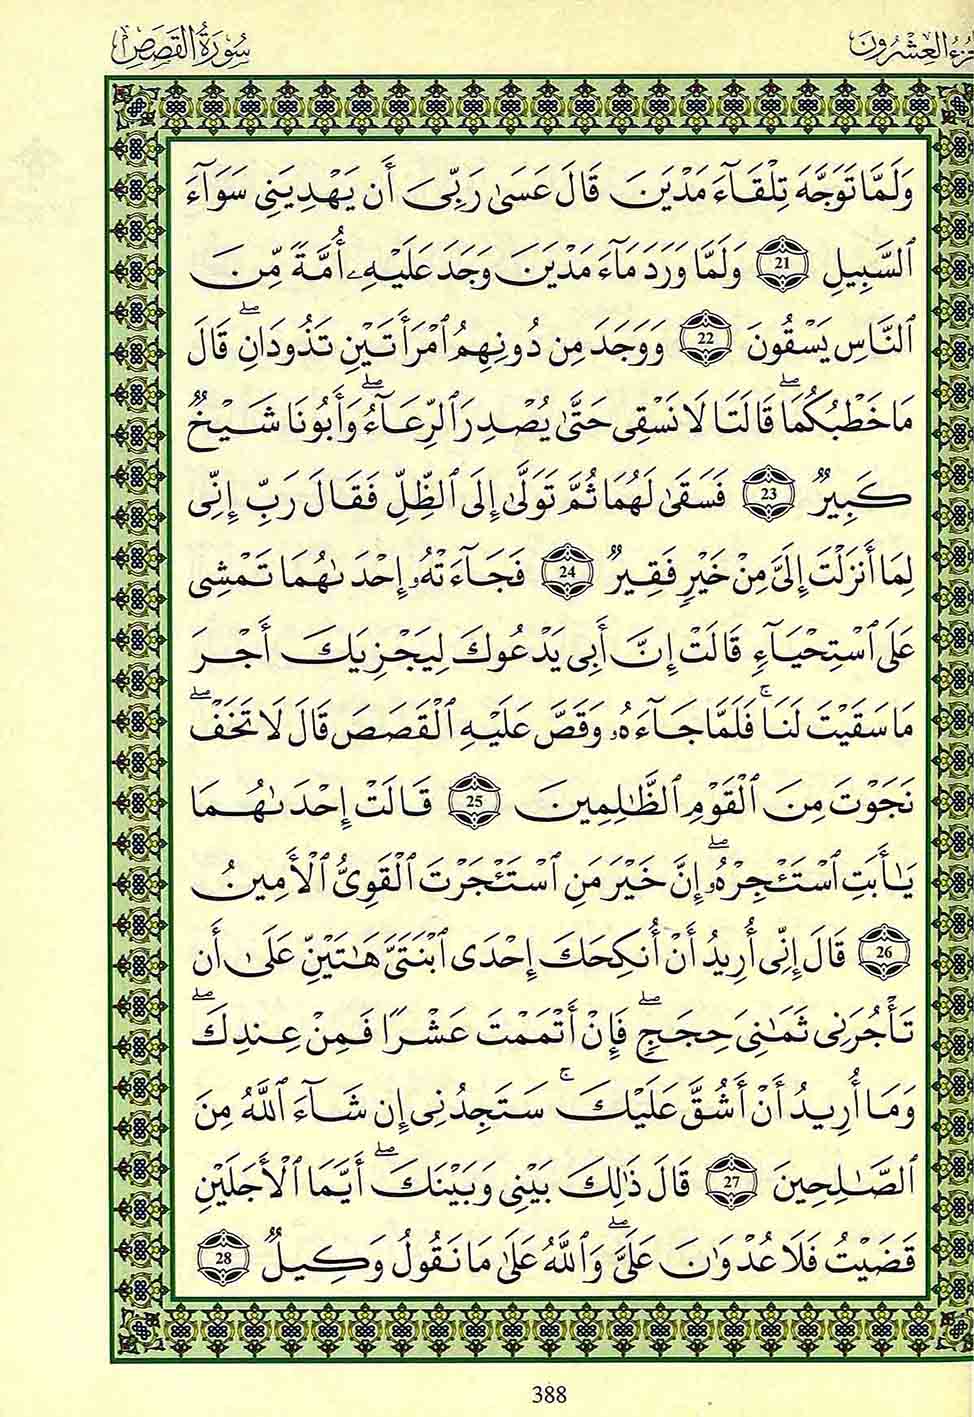 الجزء العشرون
سورة القصص
وَلَمَّا تَوَجَّهَ تِلْقَآءَ مَدْيَنَ قَالَ عَسَىٰ رَبِّىٓ أَن يَهْدِيَنِى سَوَآءَ
ٱلسَّبِيلِ 21 وَلَمَّا وَرَدَ مَآءَ مَدْيَنَ وَجَدَ عَلَيْهِ أُمَّةً مِّنَ
ٱلنَّاسِ يَسْقُونَ 22 وَوَجَدَ مِن دُونِهِمُ ٱمْرَأَتَيْنِ تَذُودَانِ ۖ قَالَ
مَا خَطْبُكُمَا ۖ قَالَتَا لَا نَسْقِى حَتَّىٰ يُصْدِرَ ٱلرِّعَآءُ ۖ وَأَبُونَا شَيْخٌ
كَبِيرٌ 23 فَسَقَىٰ لَهُمَا ثُمَّ تَوَلَّىٰٓ إِلَى ٱلظِّلِّ فَقَالَ رَبِّ إِنِّى
لِمَآ أَنزَلْتَ إِلَىَّ مِنْ خَيْرٍ فَقِيرٌ 24 فَجَآءَتْهُ إِحْدَىٰهُمَا تَمْشِى
عَلَى ٱسْتِحْيَآءٍ قَالَتْ إِنَّ أَبِى يَدْعُوكَ لِيَجْزِيَكَ أَجْرَ
مَا سَقَيْتَ لَنَا ۚ فَلَمَّا جَآءَهُۥ وَقَصَّ عَلَيْهِ ٱلْقَصَصَ قَالَ لَا تَخَفْ ۖ
نَجَوْتَ مِنَ ٱلْقَوْمِ ٱلظَّـٰلِمِينَ 25 قَالَتْ إِحْدَىٰهُمَا
يَـٰٓأَبَتِ ٱسْتَـْٔجِرْهُ ۖ إِنَّ خَيْرَ مَنِ ٱسْتَـْٔجَرْتَ ٱلْقَوِىُّ ٱلْأَمِينُ
26 قَالَ إِنِّىٓ أُرِيدُ أَنْ أُنكِحَكَ إِحْدَى ٱبْنَتَىَّ هَـٰتَيْنِ عَلَىٰٓ أَن
تَأْجُرَنِى ثَمَـٰنِىَ حِجَجٍ ۖ فَإِنْ أَتْمَمْتَ عَشْرًا فَمِنْ عِندِكَ ۖ
وَمَآ أُرِيدُ أَنْ أَشُقَّ عَلَيْكَ ۚ سَتَجِدُنِىٓ إِن شَآءَ ٱللَّهُ مِنَ
ٱلصَّـٰلِحِينَ 27 قَالَ ذَٰلِكَ بَيْنِى وَبَيْنَكَ ۖ أَيَّمَا ٱلْأَجَلَيْنِ
قَضَيْتُ فَلَا عُدْوَٰنَ عَلَىَّ ۖ وَٱللَّهُ عَلَىٰ مَا نَقُولُ وَكِيلٌ 28
388